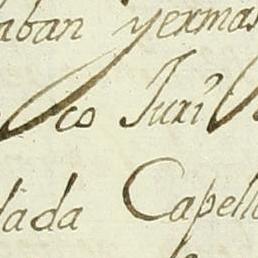 aban yermas
co Juri
dada Capell